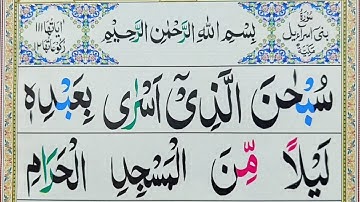 سُوْرَةُ بَنِیْٓ اِسْرَآءِیْلَ مَكِّیَّةٌ
بِسْمِ اللّٰهِ الرَّحْمٰنِ الرَّحِیْمِ
اٰیَاتُهَا ١١١ رُكُوْعَاتُهَا ١٢
سُبْحٰنَ الَّذِیْۤ اَسْرٰی بِعَبْدِهٖ
لَیْلًا مِّنَ الْمَسْجِدِ الْحَرَامِ